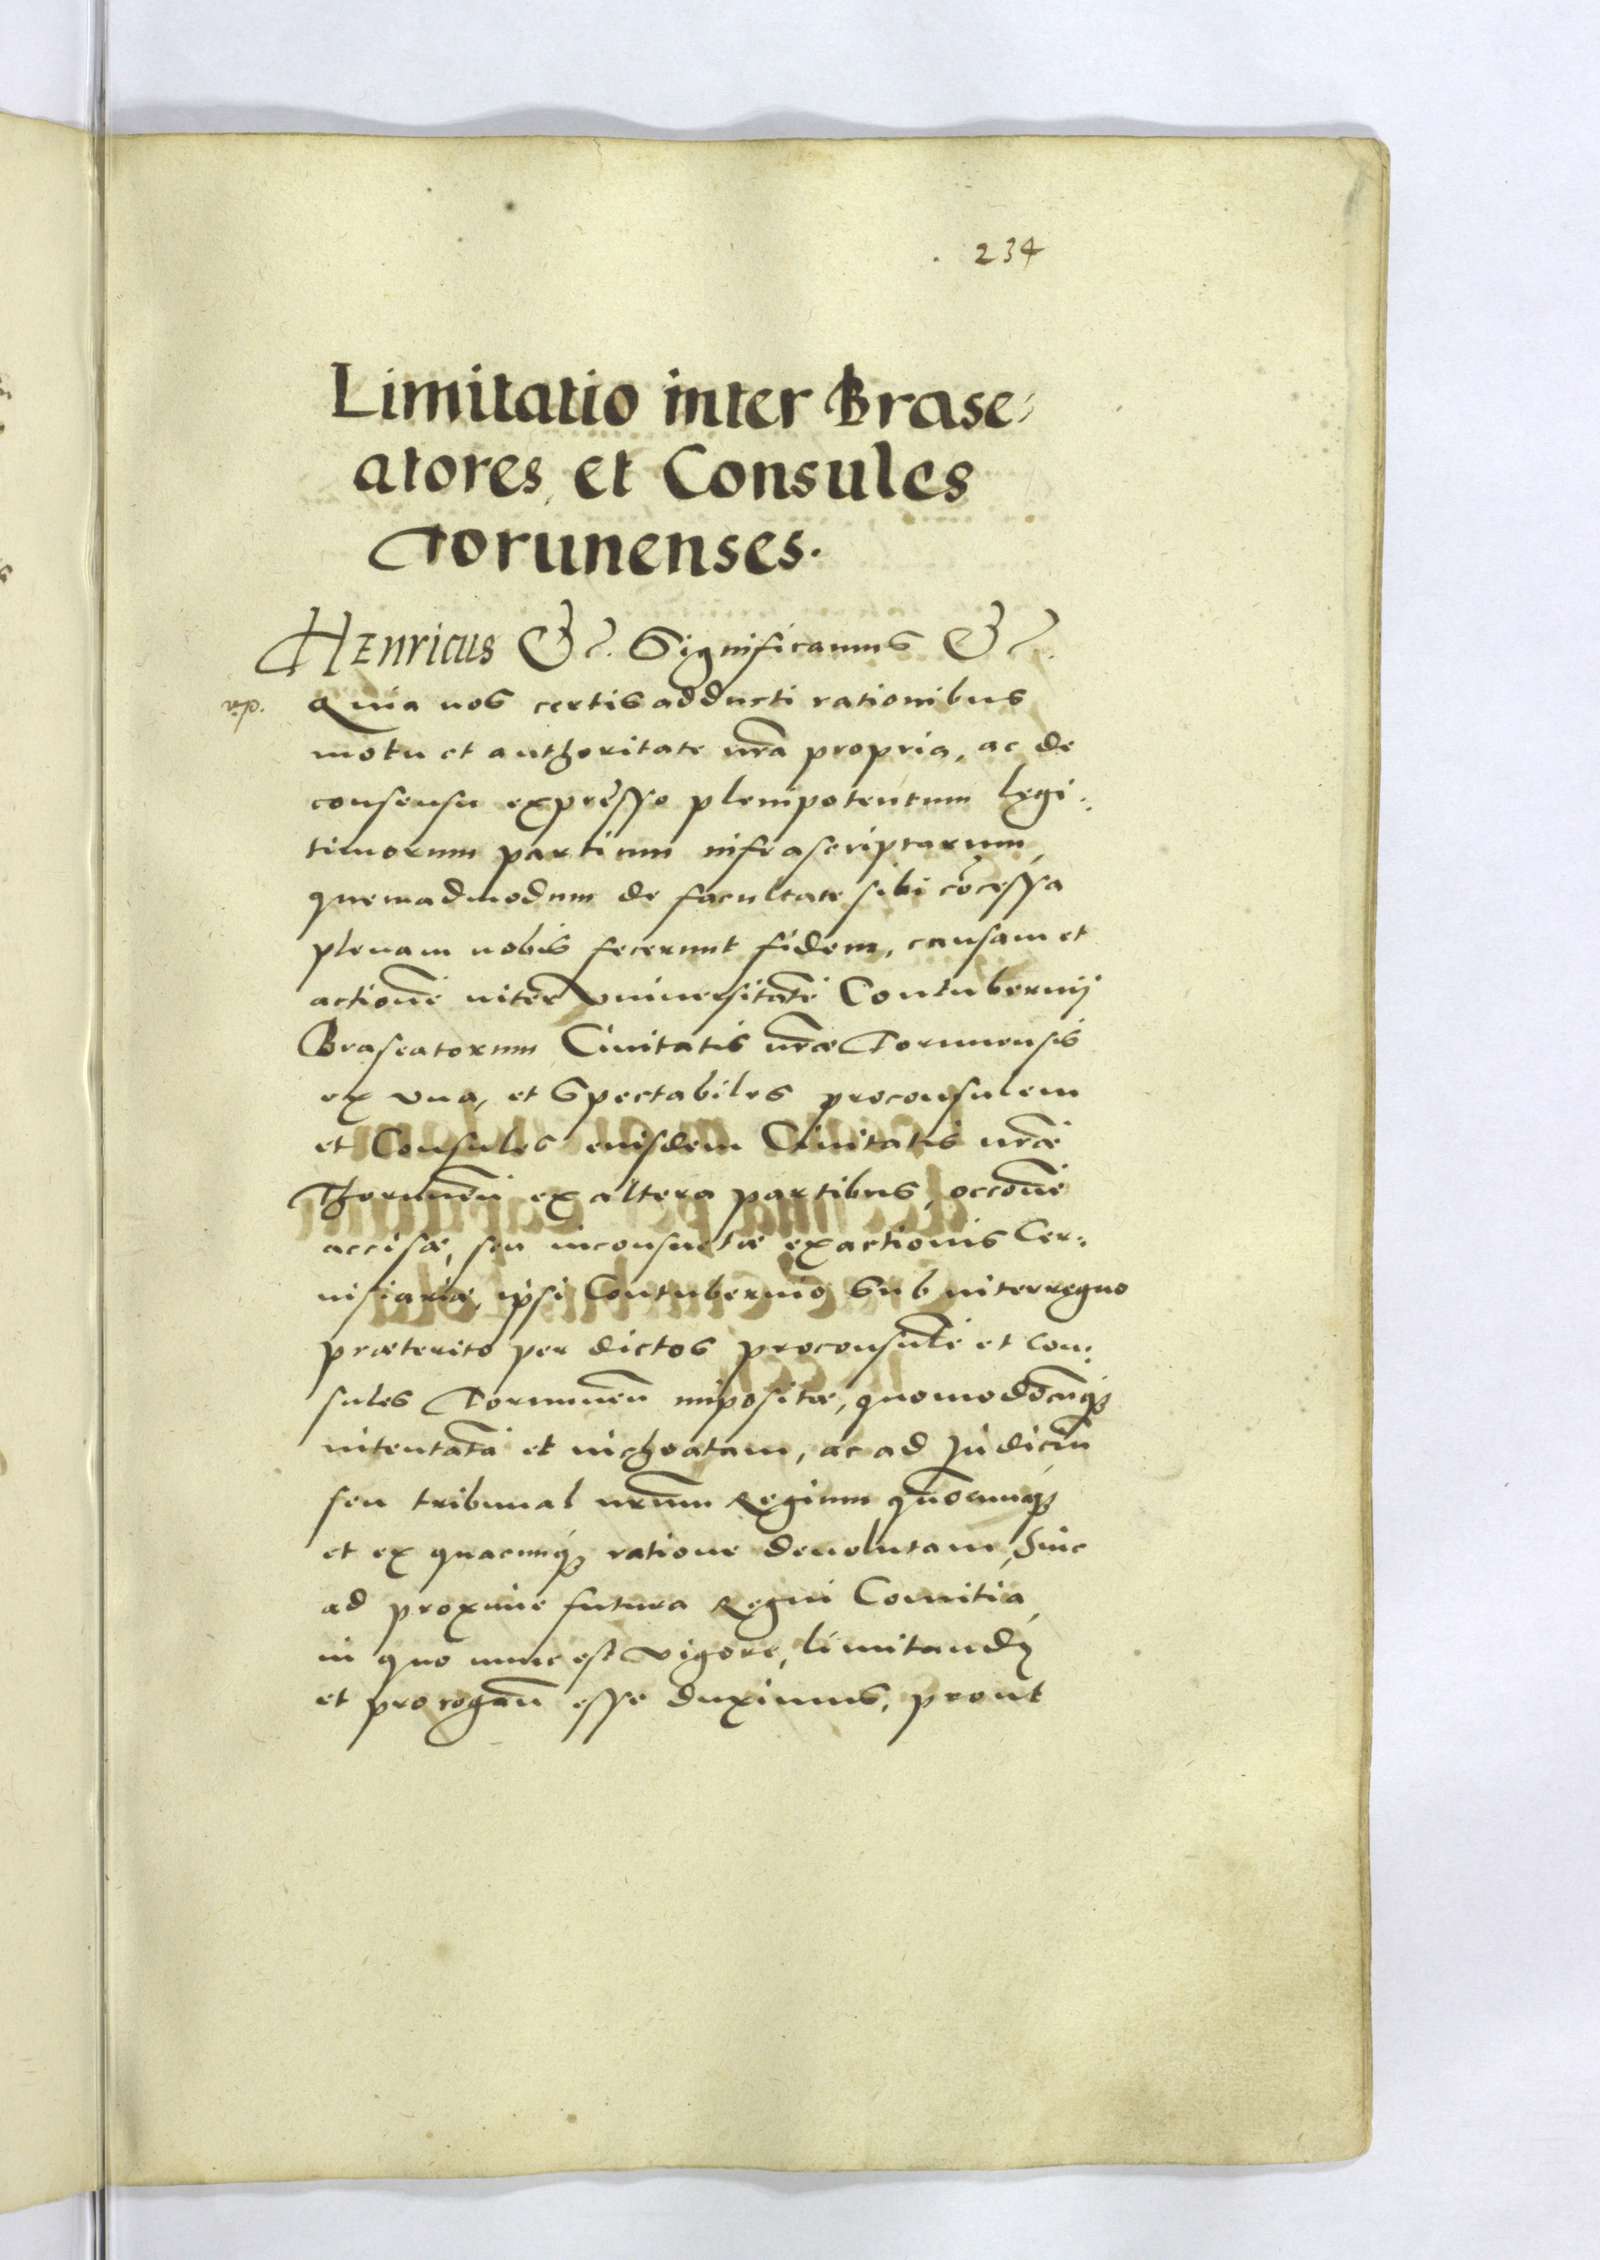 234
Limitatio inter Brase:
atores, et Consules
Torunenses.
Henricus &c. Significamus &c.
Quia nos certis adducti rationibus
motu et authoritate nrã propria, ac de
consensu expresso plenipotentum legi:
timorum partium infrascriptarum,
quemadmodum de facultate sibi cõcessa
plenam nobis fecerunt fidem, causam et
actionẽ inter Vniuersitatẽ Contubernij
Braseatorum Ciuitatis nr̃æ Torunensis
ex vna, et Spectabiles proconsulem
et Consules eiusdem Ciuitatis nr̃æ
Thorunẽn ex altera partibus, occõne
accisæ, seu inconsuetæ exactionis Cer:
uisiariæ, ipsi Contubernio sub interregno
præterito per dictos proconsulẽ et Con:
sules Torunẽn impositæ, quomodocũq3
intentatã et inchoatam, ac ad Judiciũ
seu tribunal nr̃um Regium quõcunq3
et ex quacunq3 ratione deuolutam, huic
ad proxime futura Regni Comitia,
in quo nunc est vigore, limitandã
et prorogañ esse duximus, prout